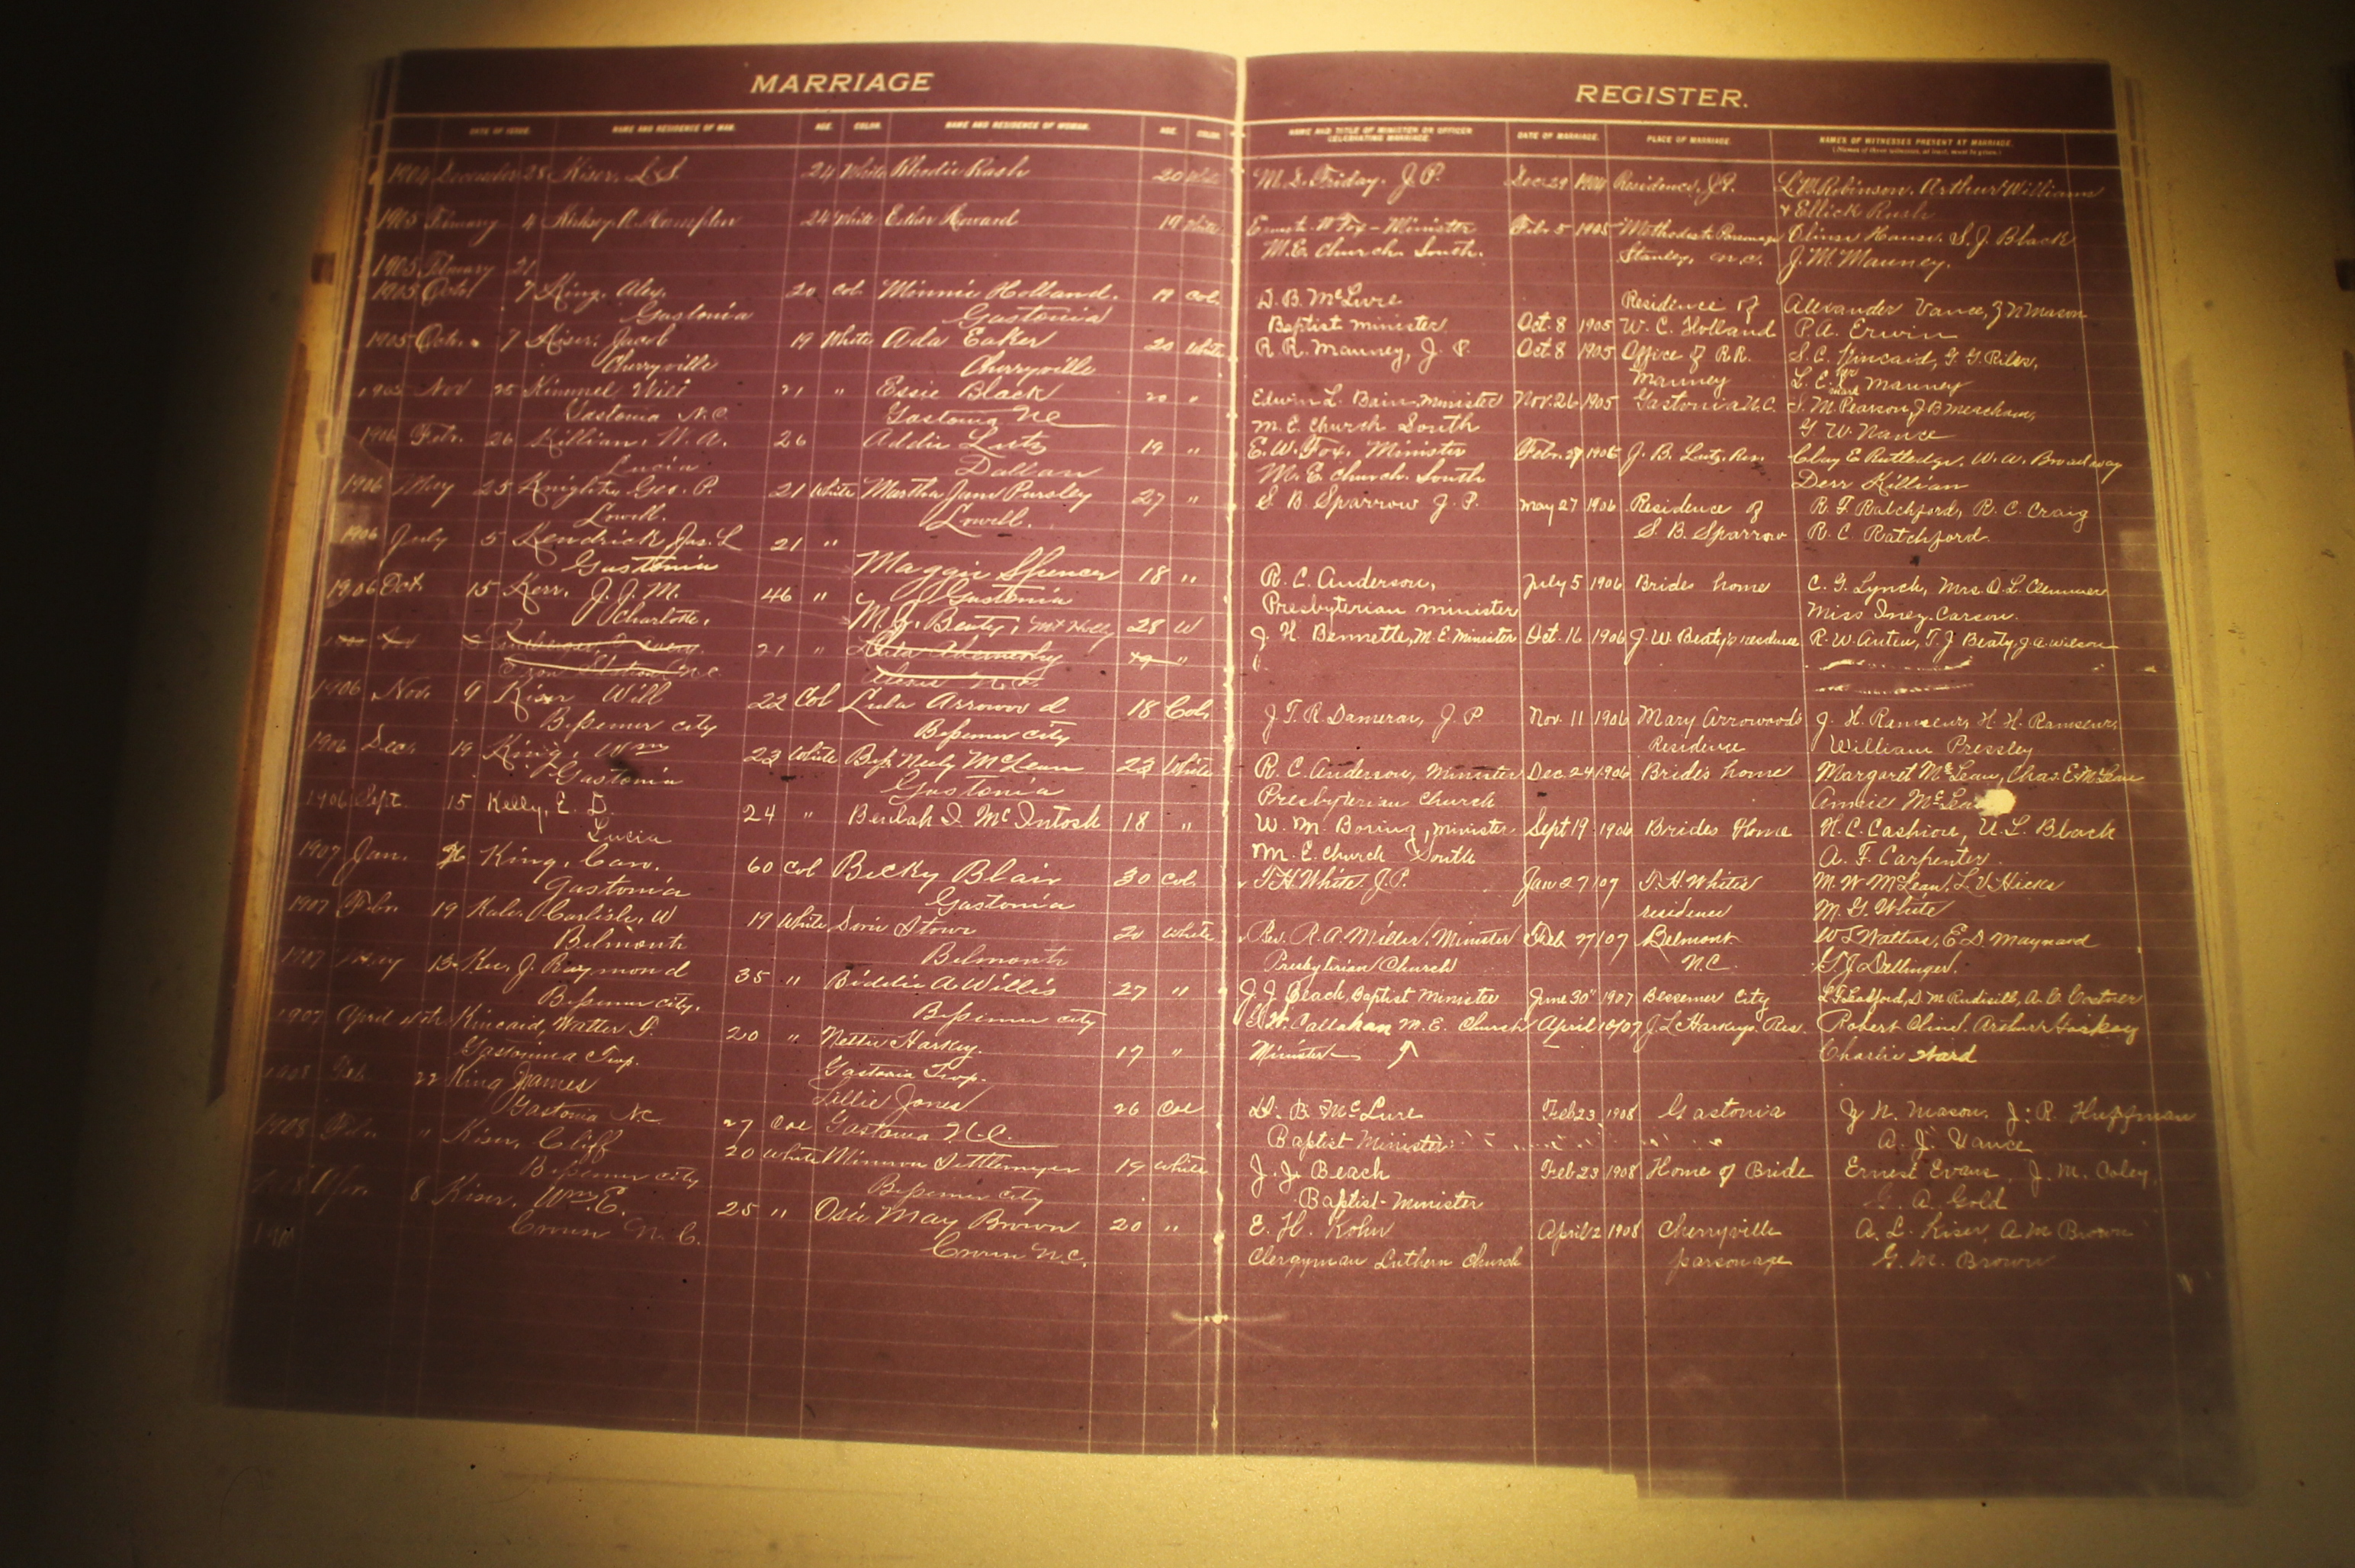 MARRIAGE
REGISTER.
DATE OF ISSUE. NAME AND RESIDENCE OF MAN. AGE. COLOR. NAME AND RESIDENCE OF WOMAN. AGE. COLOR.
NAME AND TITLE OF MINISTER OR OFFICER CELEBRATING MARRIAGE. DATE OF MARRIAGE. PLACE OF MARRIAGE. NAMES OF WITNESSES PRESENT AT MARRIAGE.
1904 December 28 Kiser, L. S. 24 White Rhodie Rash 20 White
M. L. Friday. J. P. Dec 29 1904 Residence, J.P. L. M. Robinson, Arthur Williams
& Ellick Rush
1905 February 4 24 White Esther Howard 19 White
Ernest W Fox - Minister Feb. 5 1905 Methodist Parsonage S. J. Black
M.E. Church South. Stanley, N.C. J. M. Mauney.
1905 February 21
1905 Oct 7 King, Alex. 20 Col. Minnie Holland. 19 Col.
Gastonia Gastonia
D. B. McLure Residence of Alexander Vance, Z N Mason
Baptist minister Oct. 8 1905 W. C. Holland P. A. Erwin
1905 Oct. 7 Kiser, Jacob 19 White Ada Eaker 20 White
Cherryville Cherryville
R R. Mauney, J. P. Oct 8 1905 Office of R.R. S. C. Kincaid, G. G. Riles,
Mauney L. C. her mark Mauney
Nov 25 Kimmel Will 21 " Essie Black 20 "
Gastonia N.C. Gastonia NC
Edwin L. Bain - minister Nov. 26 1905 Gastonia N.C. S. M. Pearson, J B Meacham,
M. E. Church South G W. Nance
1906 Feb. 26 Killian, W. A. 26 Addie Lutz 19 "
Lucia Dallas
E. W. Fox, Minister Feb. 27 1906 J. B. Lutz, Res. Clay E Rutledge, W. A. Broadaway
M. E. Church. South Derr Killian
1906 May 25 Knight, Geo. P. 21 White Martha Jane Pursley 27 "
Lowell. Lowell.
S B. Sparrow J. P. May 27 1906 Residence of R. F. Ratchford, R. C. Craig
S. B. Sparrow R. C. Ratchford.
1906 July 5 Kendrick Jas. L 21 " Maggie Spencer 18 "
Gastonia Gastonia
R. C. Anderson, July 5 1906 Brides home C. G. Lynch, Mrs. D. L. Clemmer
Presbyterian minister Miss Inez Carson.
1906 Oct. 15 Kerr, J. J. M. 46 " M. J. Beaty, Mt Holly 28 W
Charlotte,
J. H. Bennette, M. E. Minister Oct. 16 1906 J. W. Beaty's residence R. W. T. J Beaty, J. A. Wilson
21 " 19 "
Iron Station N.C.
1906 Nov. 9 Kiser Will 22 Col Lula Arrowood 18 Col.
Bessemer city Bessemer city
J. T. R. Dameran, J. P. Nov. 11 1906 Mary Arrowoods J. H. Ramseur, H. H. Ramseur,
Residence William Pressley
1906 Dec. 19 King, Wm 23 White Bess Neely McLean 23 White
Gastonia Gastonia
R. C. Anderson, Minister Dec 24 1906 Bride's home Margaret McLean, Chas. E McLean
Presbyterian Church Annie McLea
1906 Sept. 15 Kelly, E. D. 24 " Beulah I. McIntosh 18 "
Lucia
W. M. Boring, minister Sept 19 1906 Brides Home H. C. Cashion, U. L. Black
M. E. Church South A. F. Carpenter.
1907 Jan. 26 King, Caro. 60 Col Becky Blair 30 Col.
Gastonia Gastonia
T. H White J. P. Jan 27 07 T. H. Whites M. W McLean, L. V. Hicks
residence M. G. White
1907 Feb. 19 Kale, Carlisle. W 19 White Stowe 20 White
Belmont Belmont
Rev. R. A. Miller, Minister Feb 27 07 Belmont W S Watters, E. D Maynard
Presbyterian Church N.C. G. J. Dellinger.
1907 May 13 Kee, J. Raymond 35 " Biddie A Willis 27 "
Bessemer city, Bessemer city
J. J. Beach, Baptist Minister June 30 1907 Bessemer City D. M Rudisill, A. C. Costner
1907 April 4th Kincaid, Walter F. 20 " Nettie Harkey. 17 "
Gastonia Twp. Gastonia Twp.
Callahan M. E. Church April 10/07 J L Harkeys Res. Robert Cline, Arthur Huskey
Minister Charlie Ward
1908 Feb 22 King James 27 Col Lillie Jones 26 Col
Gastonia NC Gastonia N.C.
D. B. McLure Feb 23 1908 Gastonia Z. N. Mason. J. R. Huffman
Baptist Minister A. J. Vance
1908 Feb. " Kiser, Cliff 20 White Minnow Settlemyer 19 White
Bessemer city Bessemer city
J. J. Beach Feb 23 1908 Home of Bride Ernest Evans, J. M. Coley,
Baptist - Minister G. A. Gold
Apr. 8 Kiser, Wm. E. 25 " Osie May Brown 20 "
Crouse N. C. Crouse N.C.
E. H. Kohn April 2 1908 Cherryville A. L. Kiser, A M Brown
Clergyman Luthern Church parsonage G. M. Brown